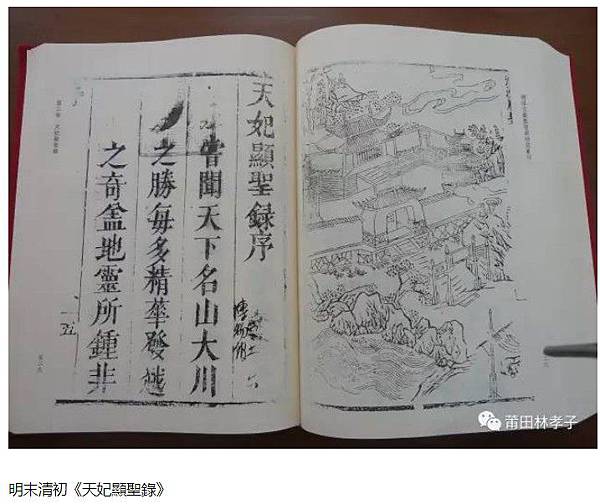 天妃顯聖錄序
嘗聞天下名山大川
之勝每多精華發越
之奇地靈所鍾非
莆田林孝子
明末清初《天妃顯聖錄》